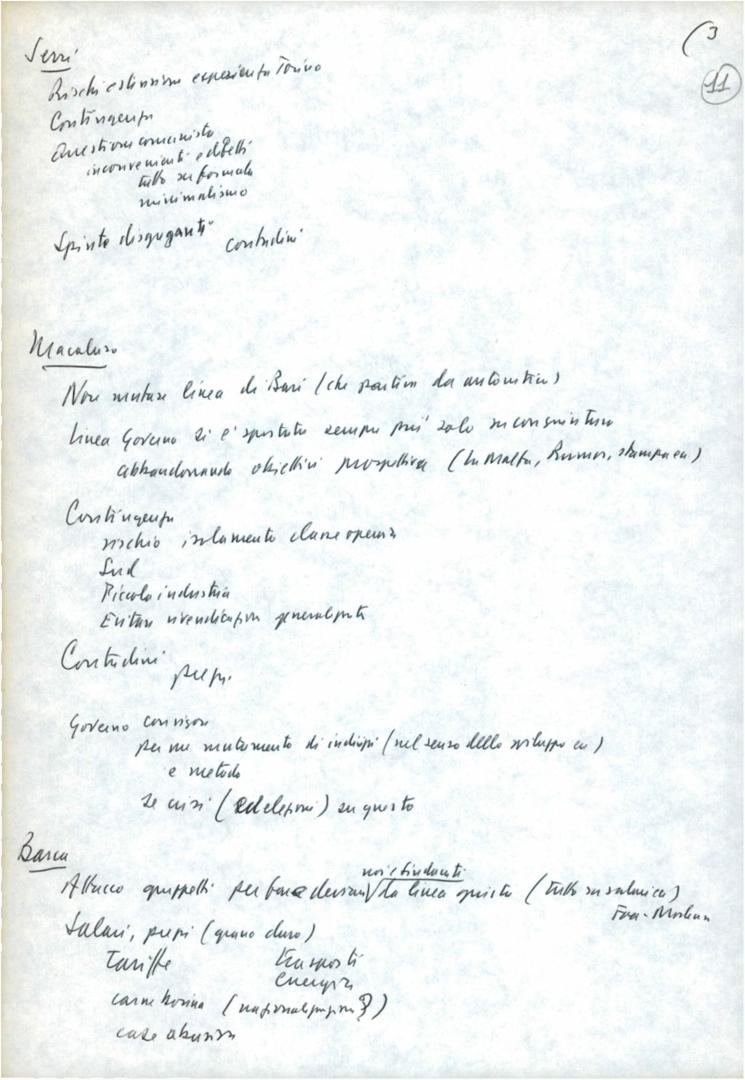 (3
11
Serri
Rischi estensione esperienza Torino
Contingenza
Questione comunista
inconvenienti e difetti
tutto su formula
minimalismo
Spinte disgreganti
contadini
Macaluso
Non mutare linea di Bari (che partiva da autocritica)
Linea Governo si è spostata sempre più solo su congiuntura
abbandonando obiettivi prospettiva (La Malfa, Rumor, stampa ecc)
Contingenza
rischio isolamento classe operaia
Sud
Piccola industria
Evitare rivendicazioni generalizzate
Contadini
prezzi
Governo
per me mutamento di indirizzi (nel senso dello sviluppo ec)
e metodo
se crisi (ed elezioni) su questo
Barca
noi e sindacati
Attacco gruppetti per far deviare da linea giusta (tutto su salario)
Foa -
Salari, prezzi (grano duro)
Tariffe trasporti
energia
carne bovina (?)
case abusive